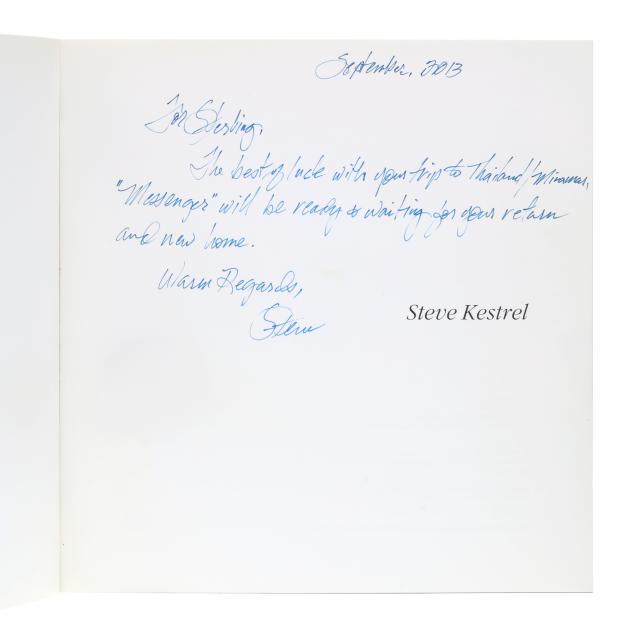 September, 2013
For Sterling,
The best of luck with your trip to Thailand/
"Messenger" will be ready & waiting for your return
and new home.
Warm Regards,
Steve
Steve Kestrel